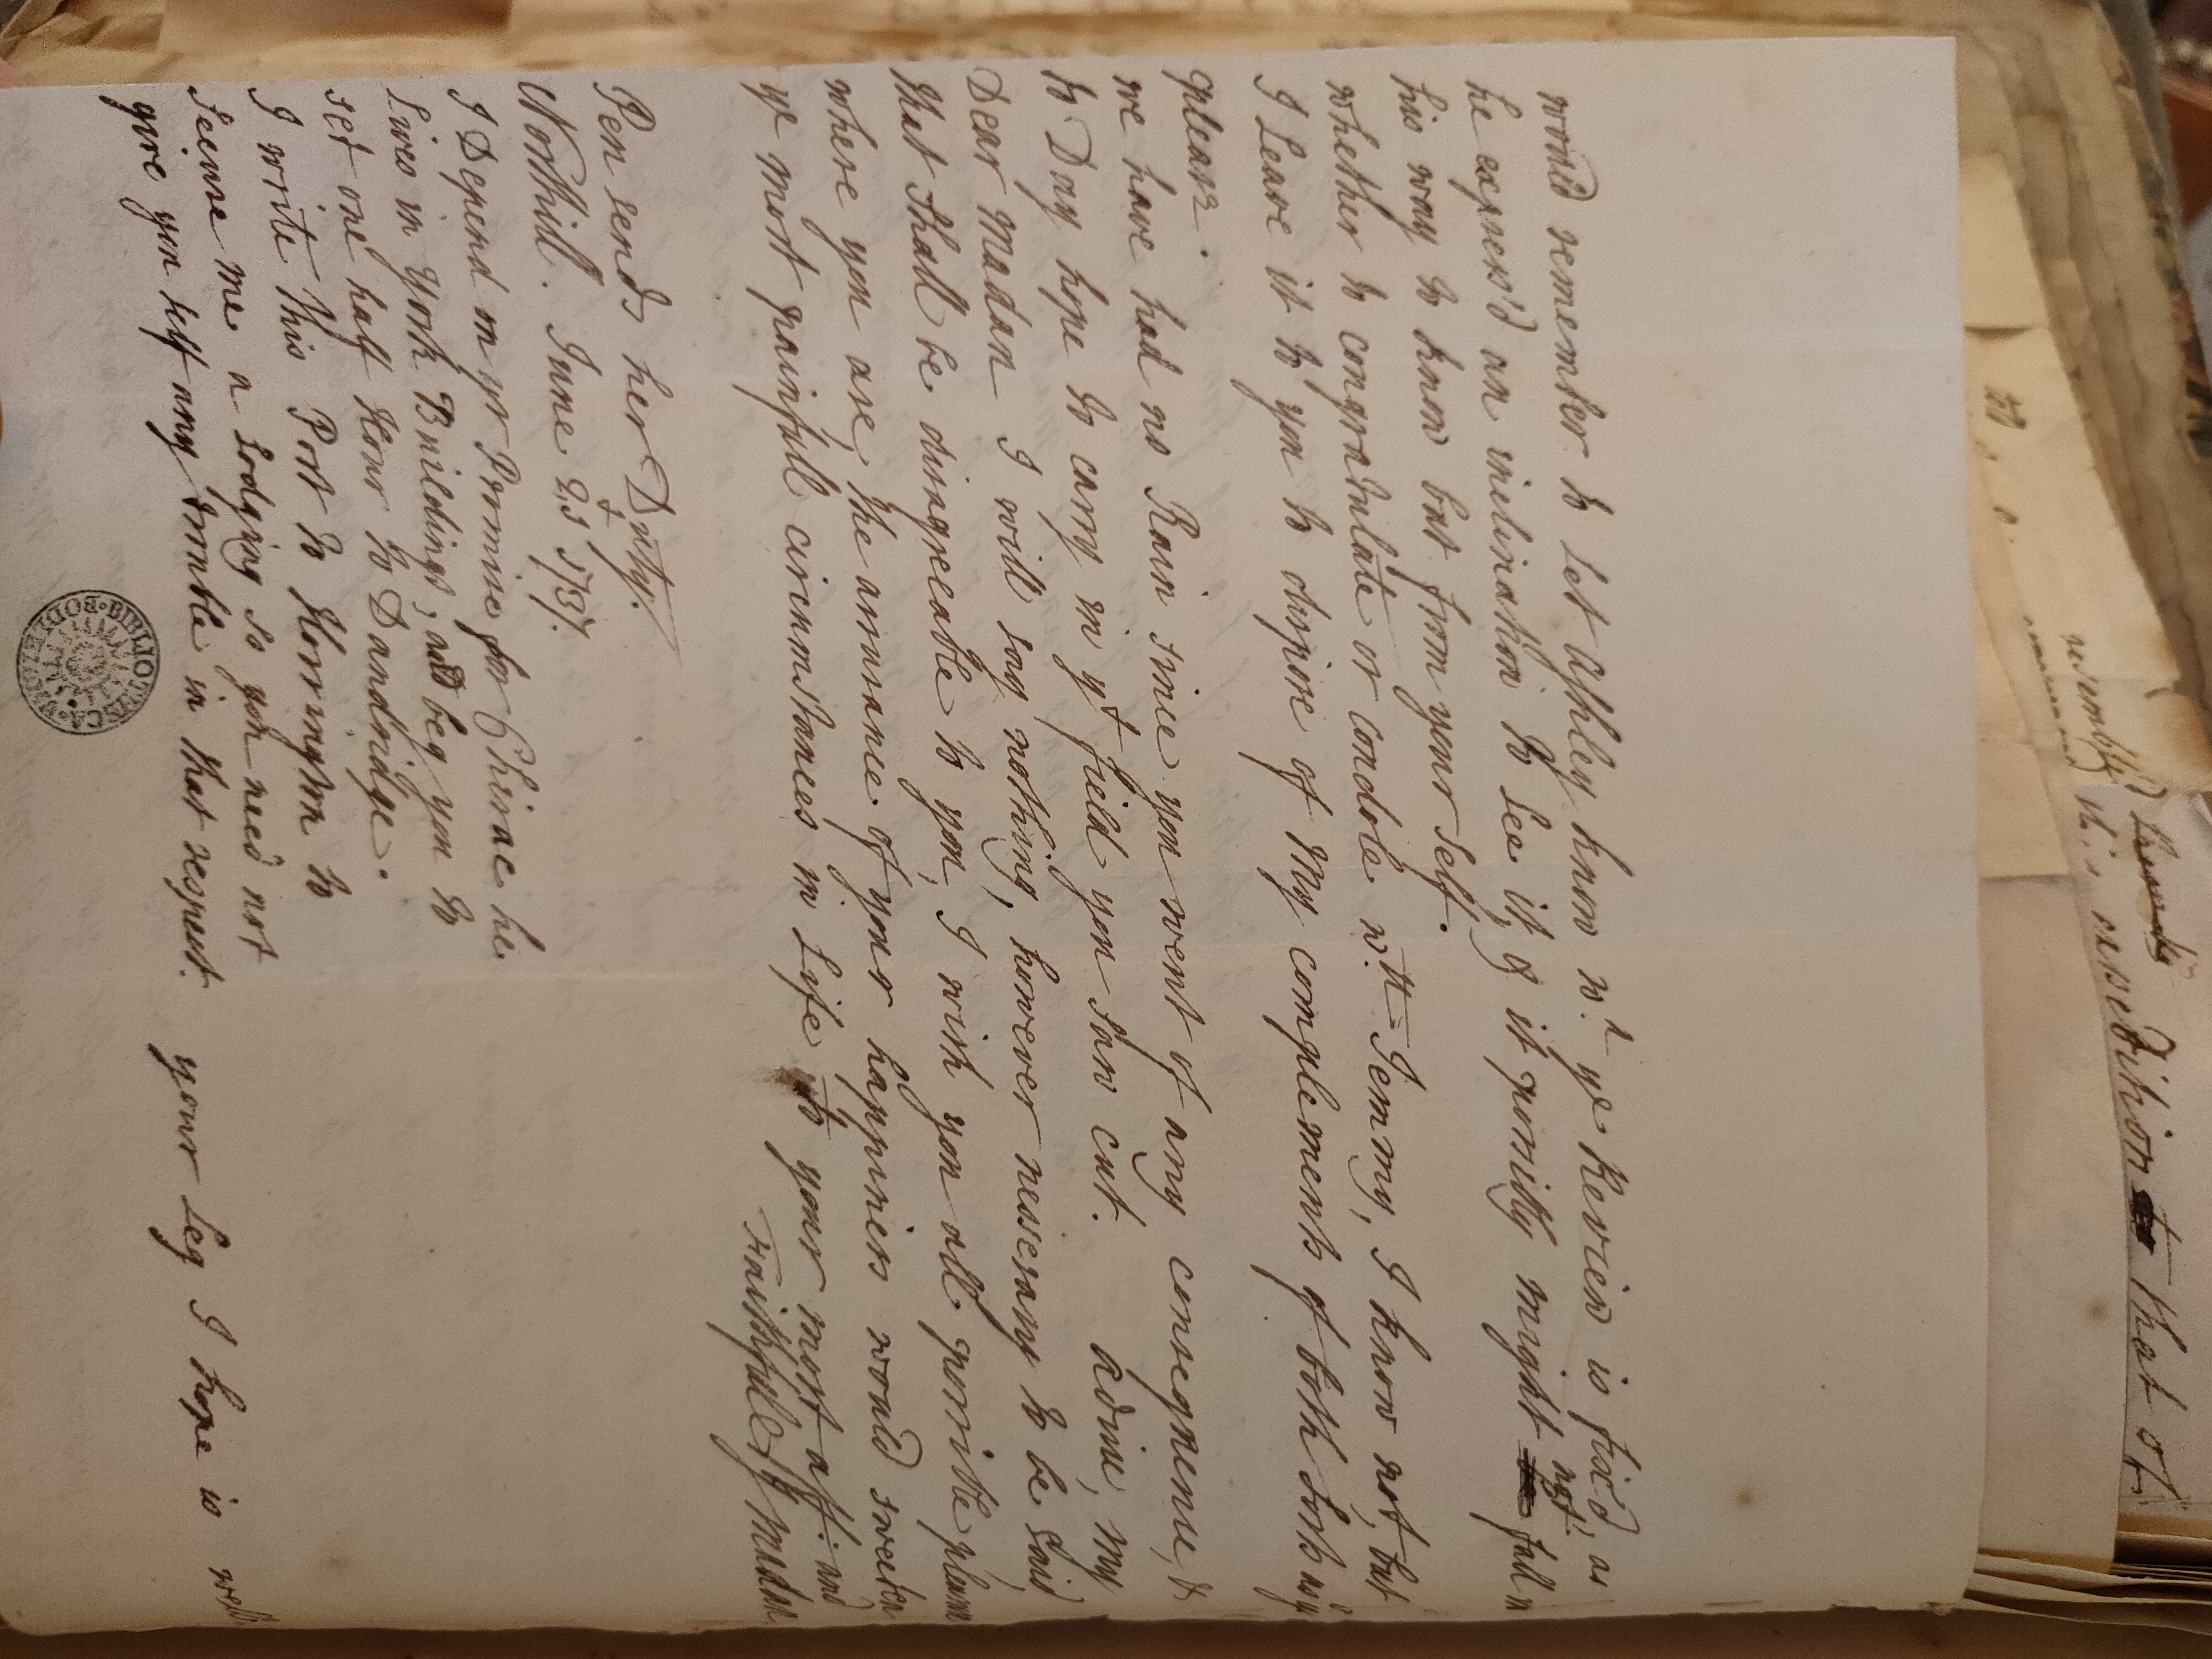 resemble
this expedition to that of
would remember to Let Ashley know wn. ye Review is fix'd, as
he express'd an inclination to See it, & it possibly might not fall in
his way to know but from your Self.
whether to congratulate or condole wth. Jemmy, I know not, but
I Leave it to you to dispose of My complements of both Sorts as yo
please.
we have had no Rain since you went of any consequence, &
to Day hope to carry in yt field you saw cut. adieu, my
Dear Madan I will say nothing, however nessesary to be Said,
that shall be disagreeable to you, I wish you all possible pleasure
where you are, the assurance of your happiness would sweeten
ye most painfull circumstances in Life to your most aff: and
Faithfull J Madan
Pen sends her Duty.
Northill. June 23 1737.
I Depend on yr Promise for Chirac he
Lives in York Buildings, and beg you to
set one half Hour to Dandridge.
I write this Post to Horrington to
Secure me a Lodging so you need not
give you self any trouble in that respect. your Leg I hope is well.
BIBLIOTHECA BODLEIANA